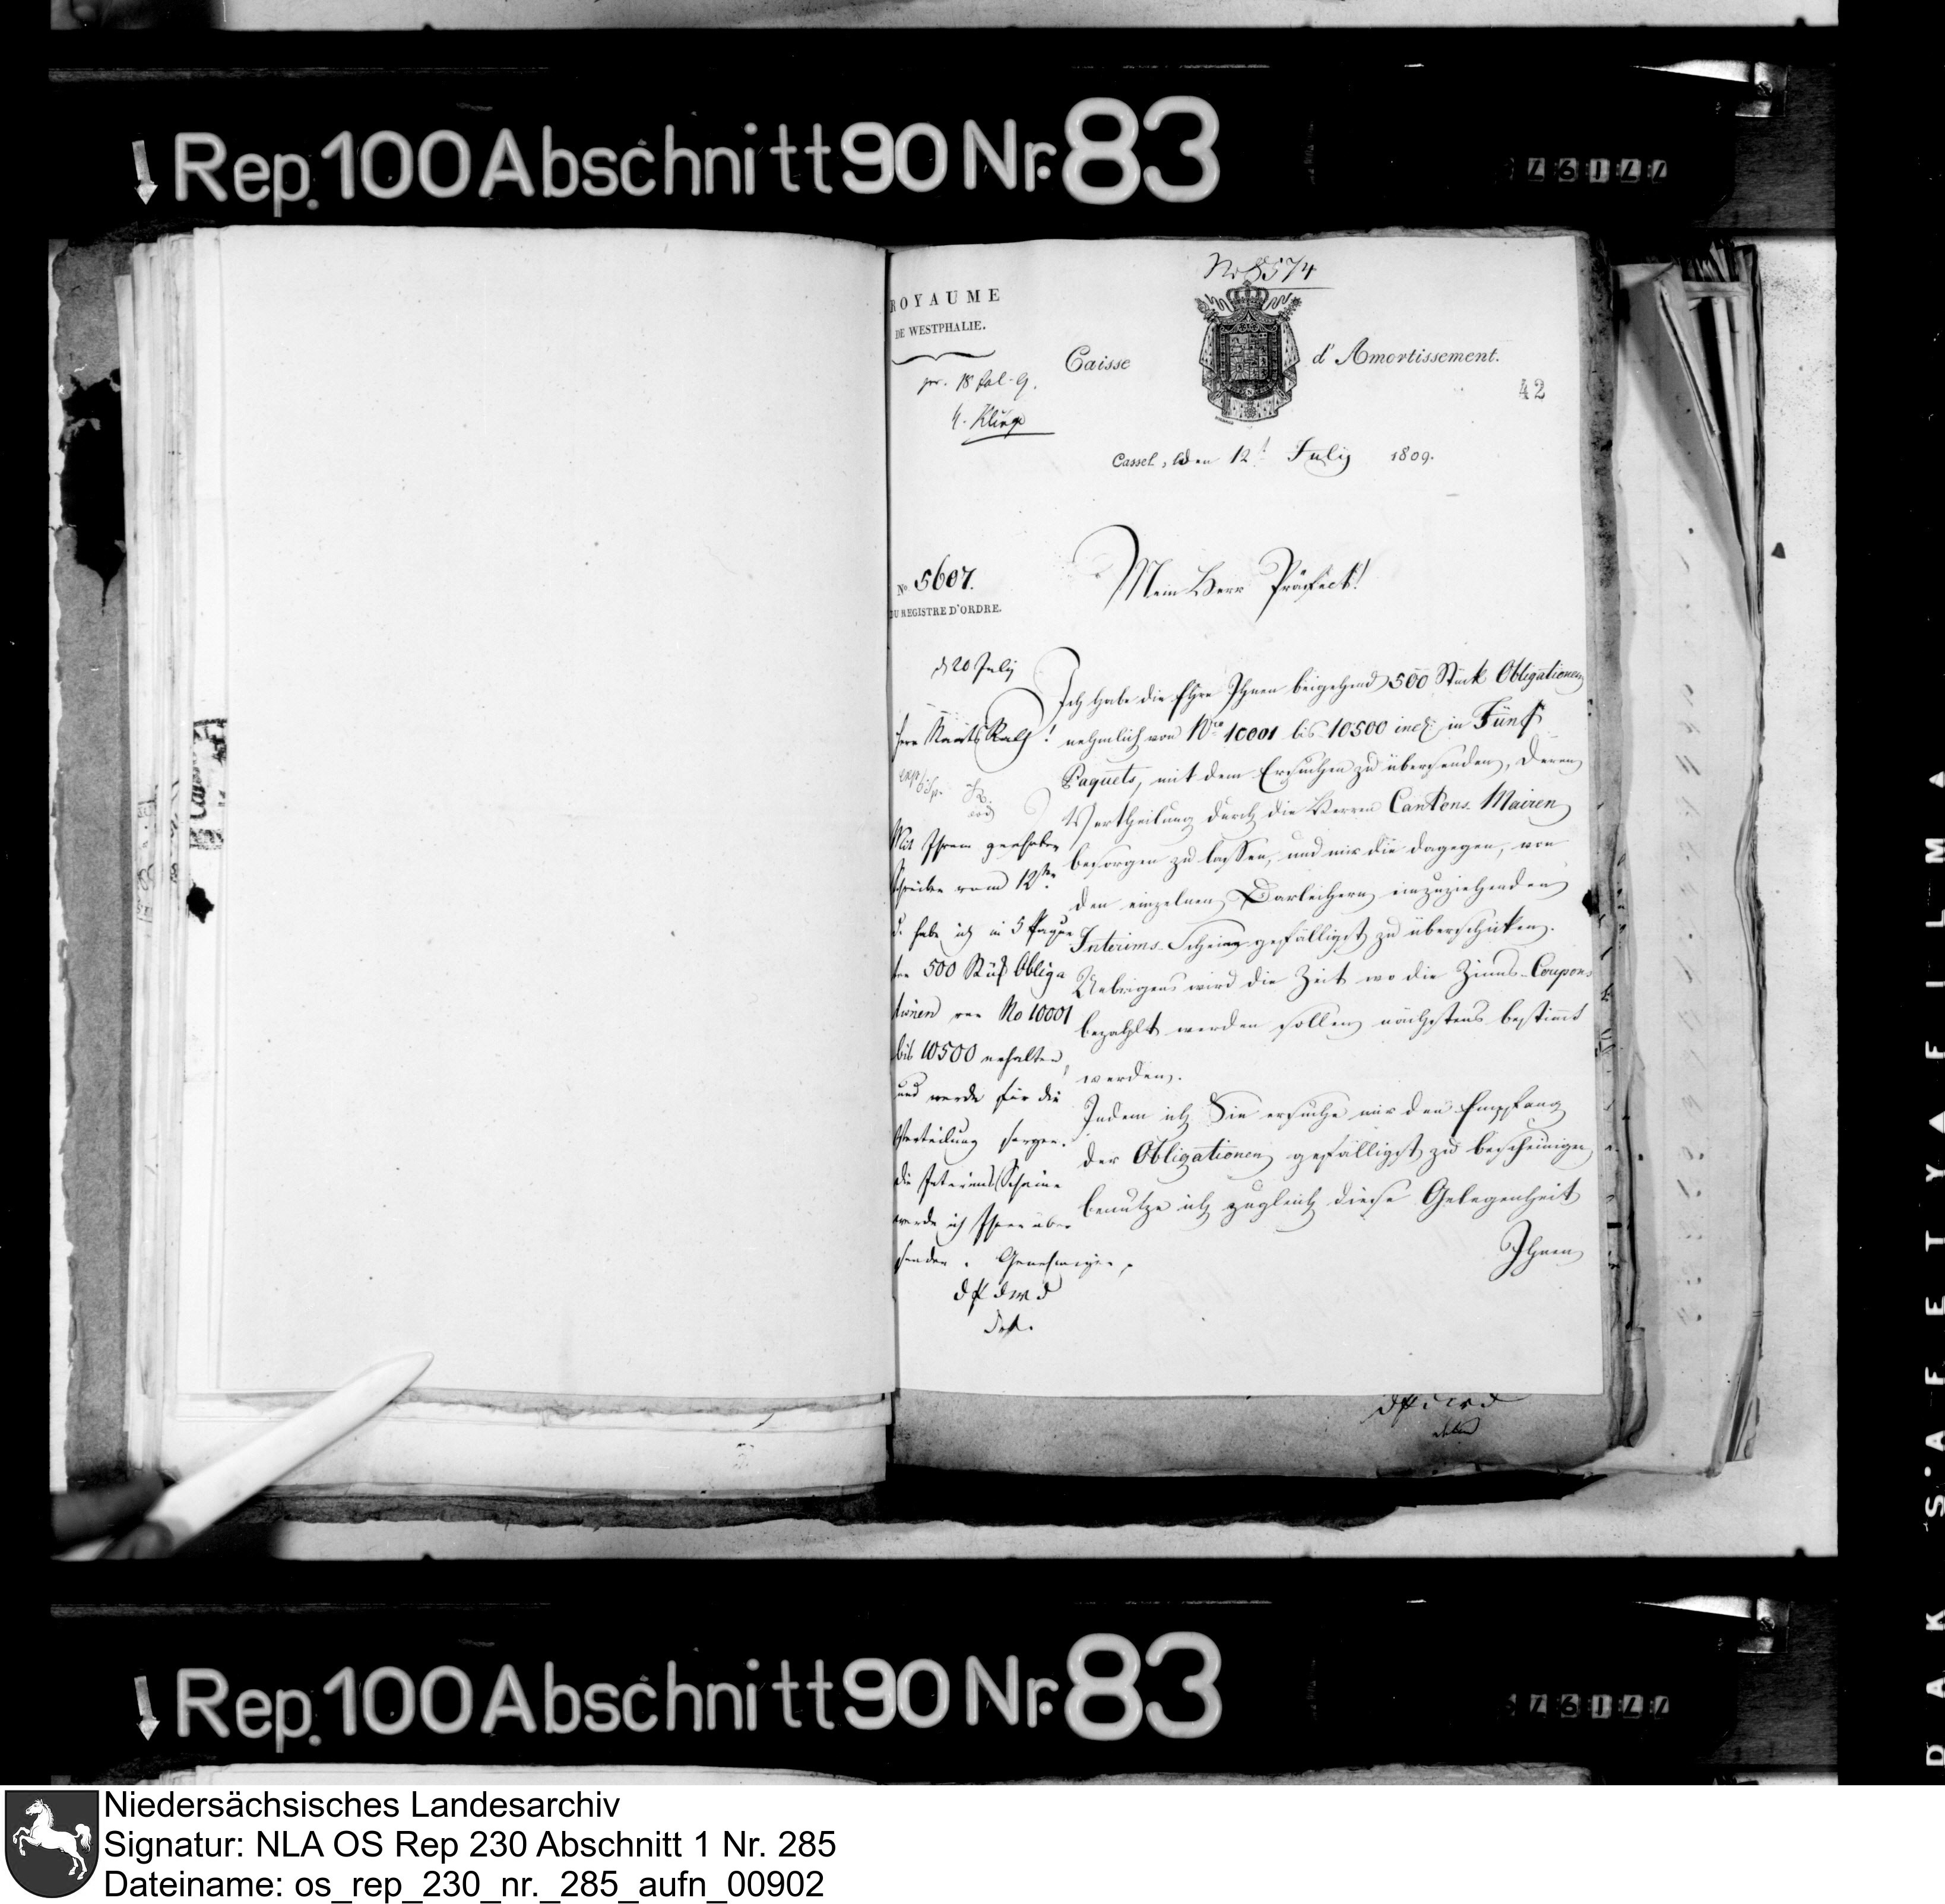 Rep. 100 Abschnitt 90 Nr. 83
No 8574
ROYAUME
DE WESTPHALIE.
Caisse d'Amortissement.
42
Cassel, den 12t July 1809.
No 5607.
DU REGISTRE D'ORDRE.
Mein Herr Präfect!
Ich habe die Ehre Ihnen beigehend 500 Stück Obligationen
nehmlich von Nro 10001 bis 10500 incl: in Fünf
Paquets, mit dem Ersuchen zu übersenden, deren
Vertheilung durch die Herren Cantons Mairen
besorgen zu lassen, und mir die dagegen, von
den einzelnen Darleihern einzuziehenden
Interims-Scheine gefälligst zu überschicken.
Uebrigens wird die Zeit wo die Zinns-Coupons
bezahlt werden sollen nächstens bestimmt
werden.
Indem ich Sie ersuche mir den Empfang
der Obligationen gefälligst zu bescheinigen
benutze ich zugleich diese Gelegenheit
Ihnen
d 20 July
Herr Staats Rath!
Mit Ihrem geehrten
Schreiben vom 12ten
d. habe ich in 5 Paque
ten 500 Stück Obliga
tionen von No 10001
bis 10500 erhalten,
und werde für die
Vertheilung sorgen.
die Interims Scheine
werde ich Ihnen über
senden. Genehmigen
Rep. 100 Abschnitt 90 Nr. 83
AK SAFETYAFILMA
Niedersächsisches Landesarchiv
Signatur: NLA OS Rep 230 Abschnitt 1 Nr. 285
Dateiname: os_rep_230_nr._285_aufn_00902